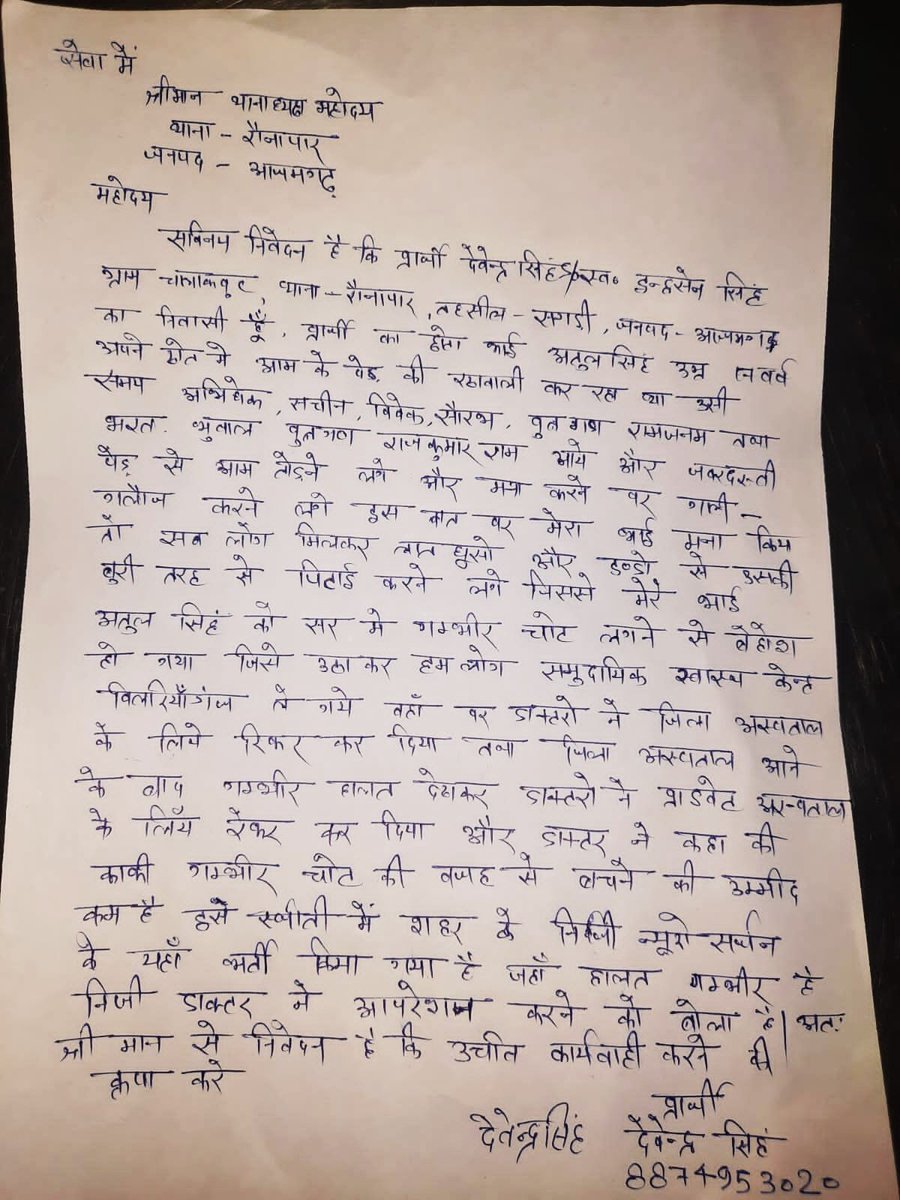 सेवा में
श्रीमान थानाध्यक्ष महोदय
थाना - रौनापार
जनपद - आजमगढ़
महोदय
सविनय निवेदन है कि प्रार्थी देवेन्द्र सिंह S/० स्व० इन्द्रसेन सिंह
ग्राम , थाना - रौनापार , तहसील - सगडी , जनपद - आजमगढ़
का निवासी हूँ , प्रार्थी का छोटा भाई अतुल सिंह उम्र वर्ष
अपने खेत मे आम के पेड़ की रखवाली कर रहा था उसी
समय अभिषेक , सचीन , विवेक , सौरभ , पुत्र गण रामजनम तथा
भरत भुवाल पुत्रगण राजकुमार राम आये और जबरदस्ती
पेड़ से आम तोड़ने लगे और मना करने पर गाली -
गलौज करने लगे इस बात पर मेरा भाई मना किया
तो सब लोग मिलकर लात घूसो और डन्डो से उसकी
बुरी तरह से पिटाई करने लगे जिससे मेरे भाई
अतुल सिंह को सर मे गम्भीर चोट लगने से बेहोश
हो गया जिसे उठा कर हम लोग समुदायिक स्वास्थ केन्द्र
बिलरियाँगंज ले गये वहाँ पर डाक्टरो ने जिला अस्पताल
के लिये रिफर कर दिया तथा जिला अस्पताल आने
के बाद गम्भीर हालत देखकर डाक्टरो ने प्राइवेट अस्पताल
के लिये रेफर कर दिया और डाक्टर ने कहा की
काफी गम्भीर चोट की वजह से बचने की उम्मीद
कम है इसे स्थीती में शहर के निजी न्यूरो सर्जन
के यहाँ भर्ती किया गया है जहाँ हालत गम्भीर है
निजी डाक्टर ने आपरेशन करने को बोला है | अतः
श्री मान से निवेदन है कि उचीत कार्यवाही करने की
कृपा करे
प्रार्थी
देवेन्द्र सिंह देवेन्द्र सिंह
8874953020